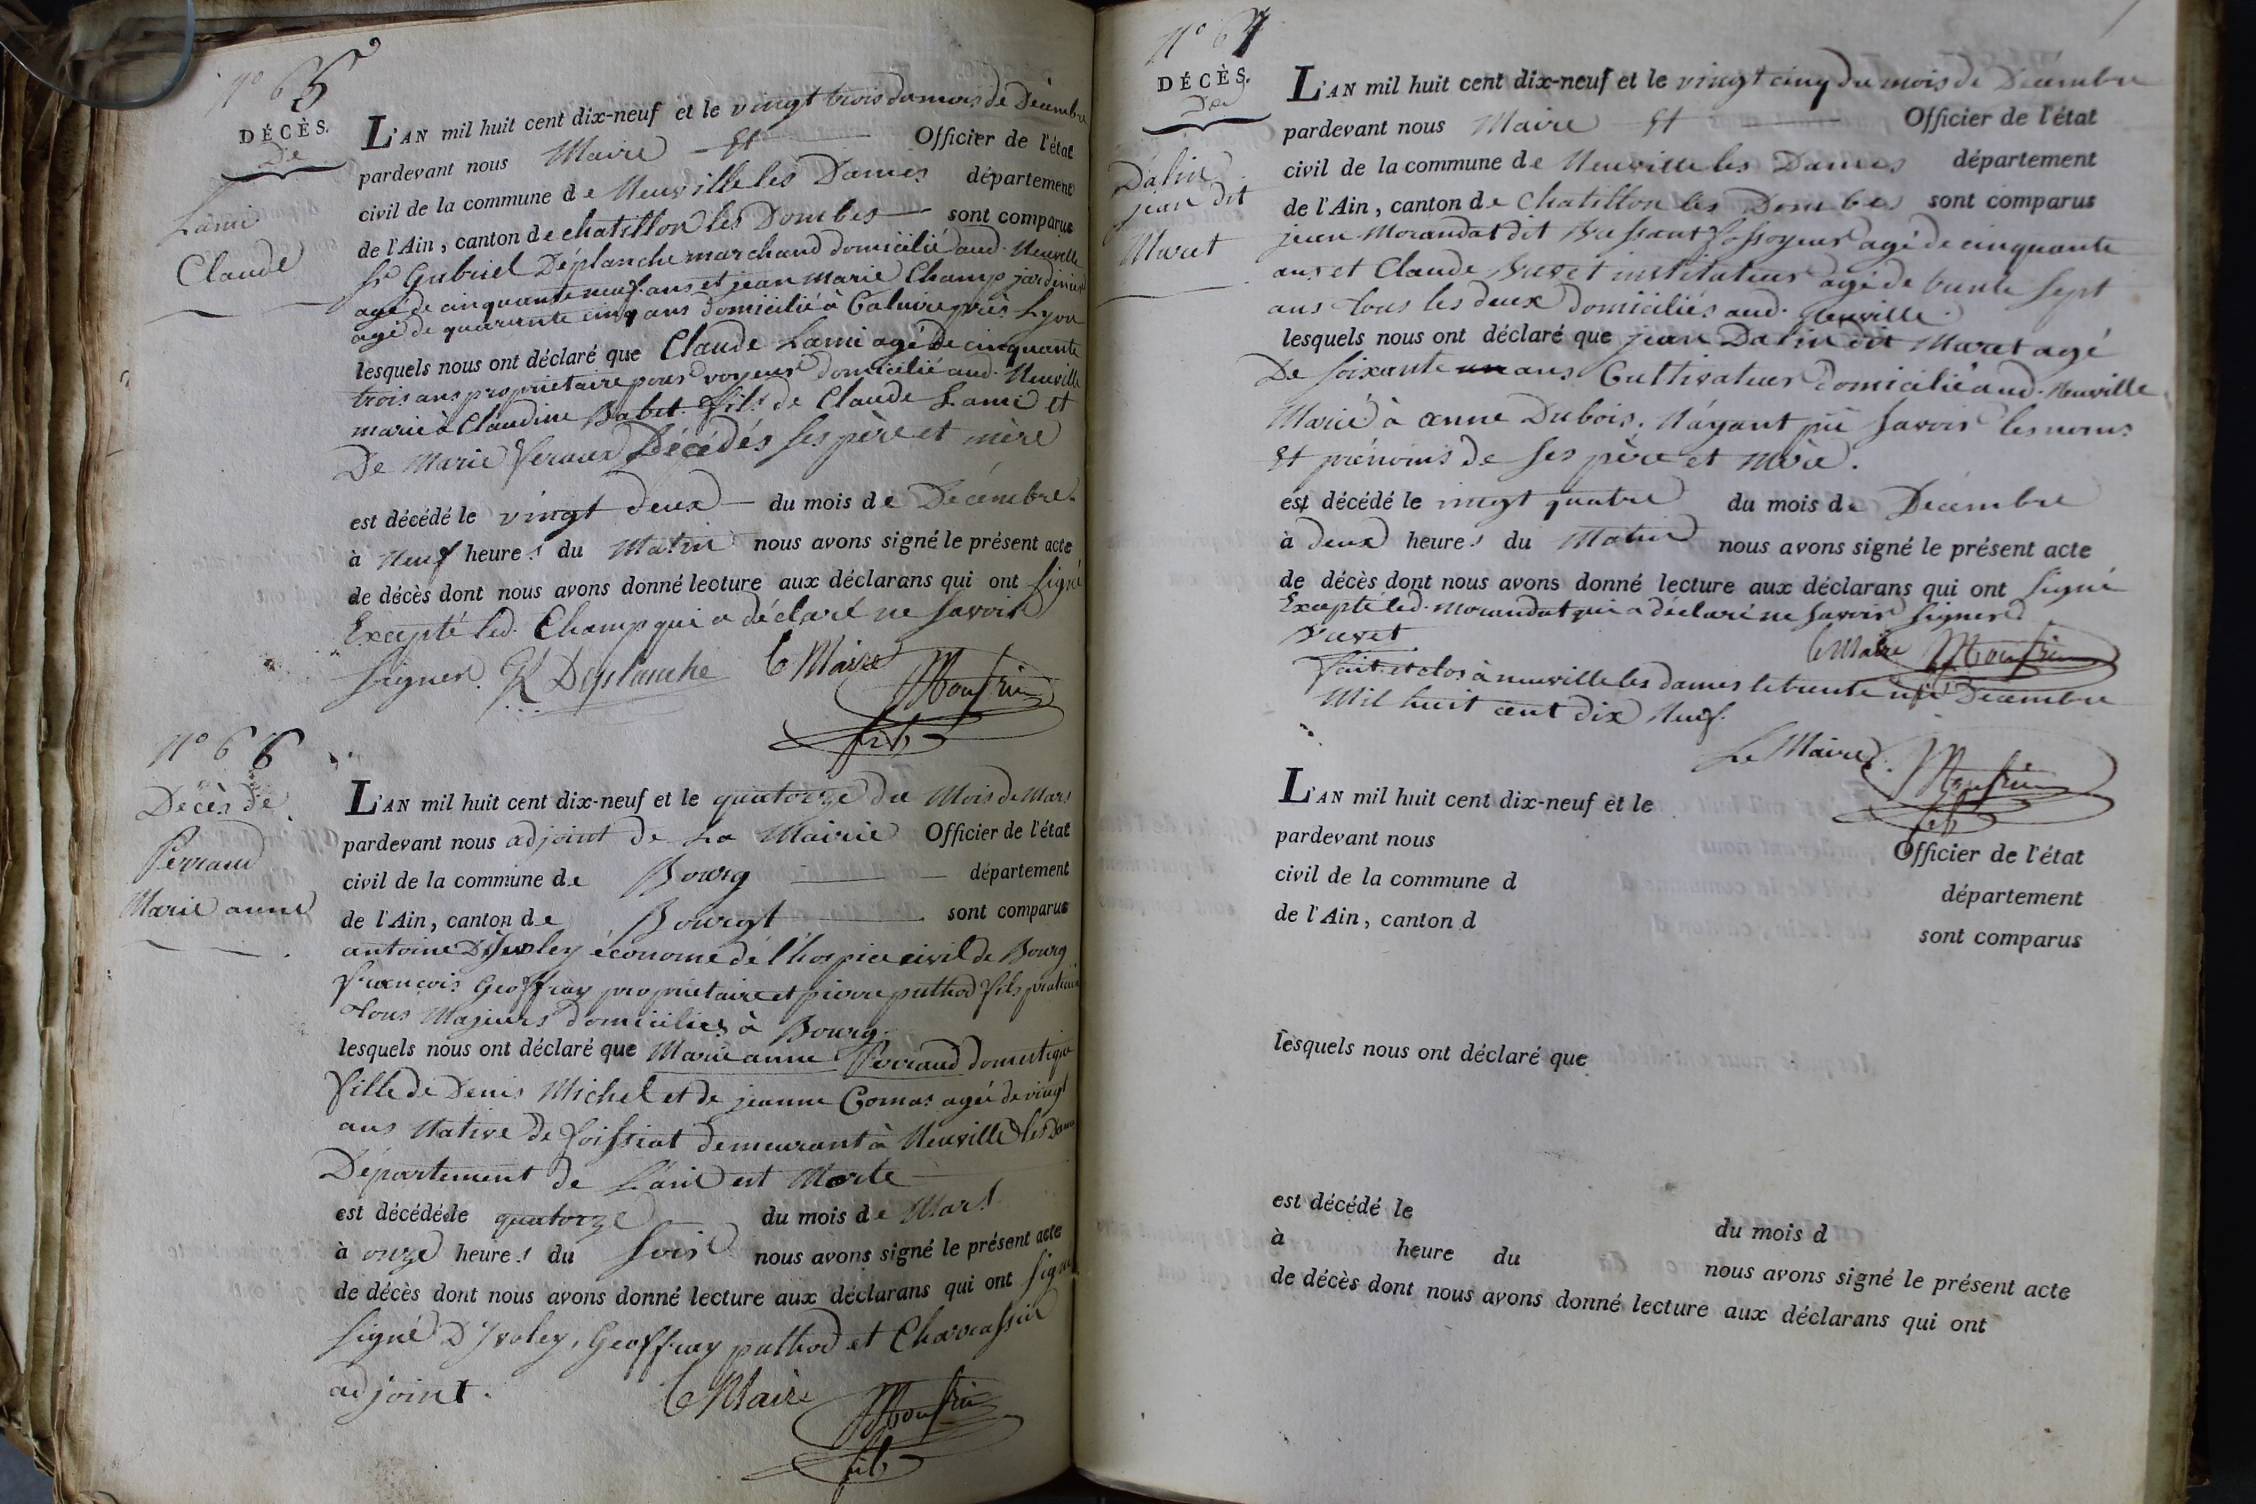 N° 65
DÉCÈS.
De
Lami
Claude
L'AN mil huit cent dix-neuf et le vingt trois du mois de Décembre
pardevant nous Maire Et Officier de l'état
civil de la commune de Neuville les Dames département
de l'Ain, canton de chatillon les Dombes sont comparus
Sr Gabriel Déplanche marchand domicilié aud. Neuville
agé de cinquante neuf ans et jean Marie Champ jardinier
agé de quarante cinq ans domicilié à Caluire près Lyon
lesquels nous ont déclaré que Claude Lami agé de cinquante
trois ans propriétaire pourvoyeur domicilié aud. Neuville
marié à Claudine Babet fils de Claude Lami et
De Marie Décédés ses père et mère
est décédé le vingt deux du mois de Décembre
à Neuf heures du Matin nous avons signé le présent acte
de décès dont nous avons donné lecture aux déclarans qui ont signé
Excepté led. Champ qui a déclaré ne savoir
signer. Déplanche Le Maire Monfrin
N° 66
Décès de
Perraud
Marie anne
L'AN mil huit cent dix-neuf et le quatorze du Mois de Mars
pardevant nous adjoint de La Mairie Officier de l'état
civil de la commune de Bourg département
de l'Ain, canton de Bourgt sont comparus
antoine D'Ivoley économe de l'hospice civil de Bourg
françois Geoffray propriétaire et pierre puthod fils praticien
tous Majeurs domiciliés à Bourg
lesquels nous ont déclaré que Marie anne Perraud domestique
fille de Denis Michel et de jeanne Comas agée de vingt
ans Native de foissiat demeurant à Neuville les Dames
Département de L'ain est Morte
est décédée le quatorze du mois de Mars
à onze heures du soir nous avons signé le présent acte
de décès dont nous avons donné lecture aux déclarans qui ont signé
signé D'Ivoley, Geoffray puthod et Chavrassin
adjoint. Le Maire Monfrin
N° 67
DÉCÈS.
De
Dalin
jean dit
Maret
L'AN mil huit cent dix-neuf et le vingt cinq du mois de Décembre
pardevant nous Maire Et Officier de l'état
civil de la commune de Neuville les Dames département
de l'Ain, canton de Chatillon les Dombes sont comparus
jean Morandat dit Bussaut fossoyeur agé de cinquante
ans et Claude Buret instituteur agé de trente sept
ans tous les deux domiciliés aud. Neuville.
lesquels nous ont déclaré que jean Dalin dit Maret agé
De soixante un ans Cultivateur domicilié aud. Neuville
Marié à anne Dubois. N'ayant pu savoir les noms
Et prénoms de ses père et Mère.
est décédé le vingt quatre du mois de Décembre
à deux heures du Matin nous avons signé le présent acte
de décès dont nous avons donné lecture aux déclarans qui ont signé
Excepté led. Morandat qui a déclaré ne savoir signer
Buret Le Maire Monfrin
Fait et clos à neuville les dames le trente un Décembre
Mil huit cent dix Neuf.
Le Maire. Monfrin
L'AN mil huit cent dix-neuf et le
pardevant nous Officier de l'état
civil de la commune d département
de l'Ain, canton d sont comparus
lesquels nous ont déclaré que
est décédé le du mois d
à heure du nous avons signé le présent acte
de décès dont nous avons donné lecture aux déclarans qui ont